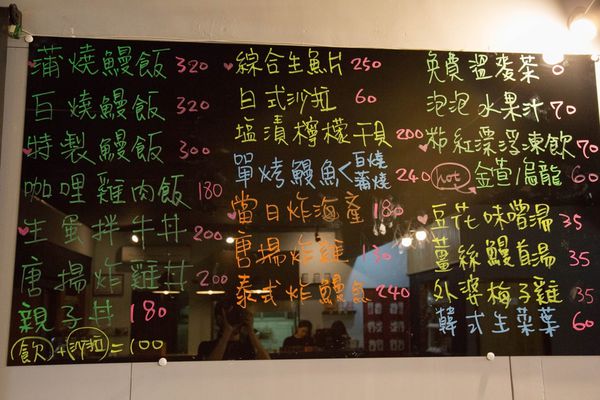 蒲燒鰻飯 320
白燒鰻飯 320
特製鰻飯 300
咖哩雞肉飯 180
生蛋拌牛丼 200
唐揚炸雞丼 200
親子丼 180
飲+沙拉=100
綜合生魚片 250
日式沙拉 60
塩漬檸檬干貝 200
單烤鰻魚<白燒 蒲燒 240
當日炸海產 180
唐揚炸雞 130
泰式炸鰻魚 240
免費溫麥茶 0
泡泡水果汁 70
粉紅漂浮凍飲 70
hot 金萱/烏龍 60
豆花味噌湯 35
薑絲鰻湯 35
外婆梅子雞 35
韓式生菜 60